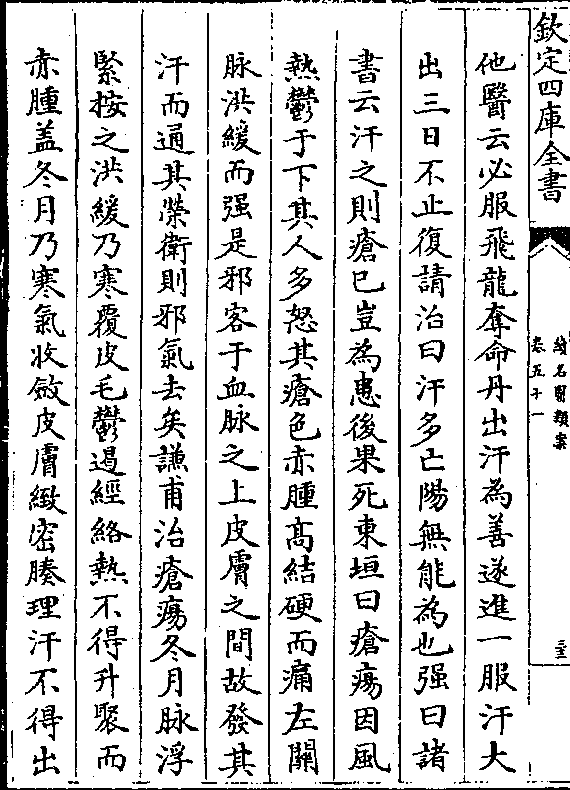 欽定四庫全書
續名醫類案
卷五十一
他醫云必服飛龍奪命丹出汗為善遂進一服汗大
出三日不止復請治曰汗多亡陽無能為也强曰諸
書云汗之則瘡已豈為患後果死東垣曰瘡瘍因風
熱鬱于下其人多怒其瘡色赤腫髙結硬而痛左關
脉洪緩而强是邪客于血脉之上皮膚之間故發其
汗而通其榮衛則邪氣去矣謙甫治瘡瘍冬月脉浮
緊按之洪緩乃寒覆皮毛鬱遏經絡熱不得升聚而
赤腫盖冬月乃寒氣收斂皮膚緻密腠理汗不得出